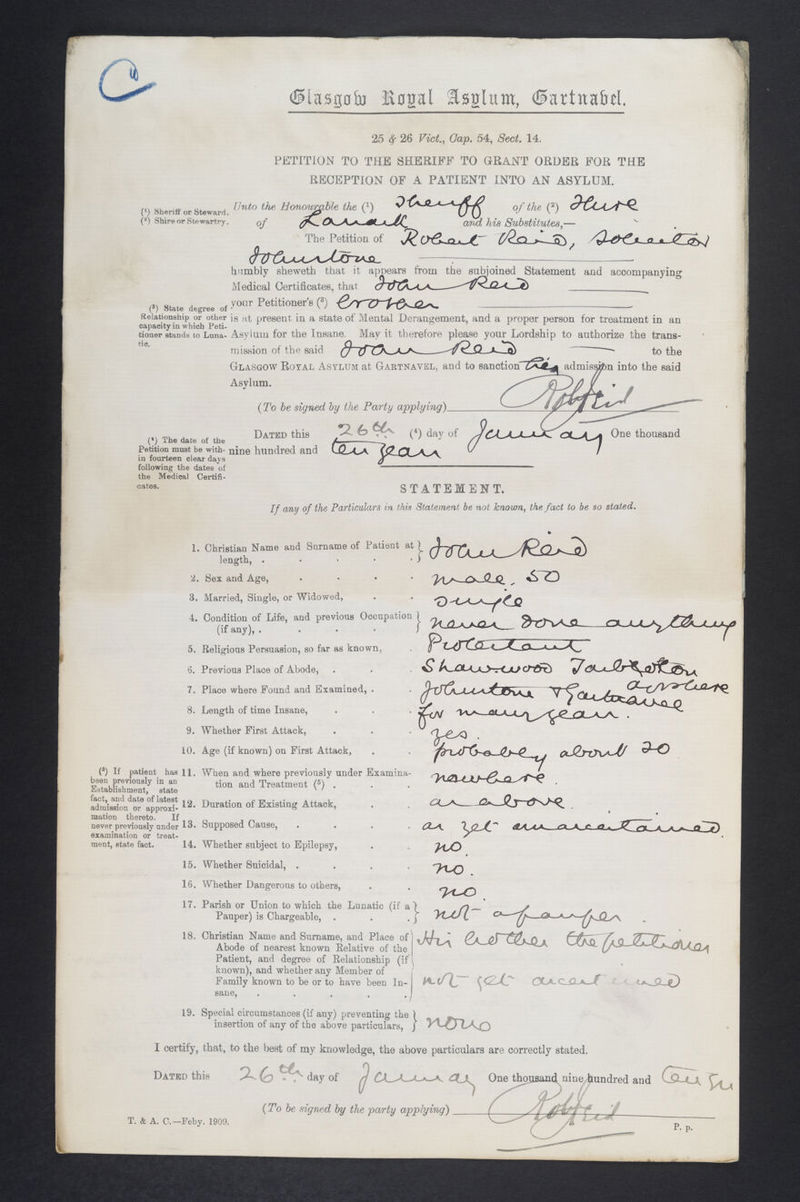 Glasgow Royal Asylum, Gartnabel.
25 & 26 Vict., Cap. 54, Sect. 14.
PETITION TO THE SHERIFF TO GRANT ORDER FOR THE
RECEPTION OF A PATIENT INTO AN ASYLUM.
(¹) Sheriff or Steward.
(²) Shire or Stewartry.
Unto the Honourable the (¹) Sheriff of the (²) Shire
of Lanark and his Substitutes,—
The Petition of Robert Reid, Solicitor
Johnstone
humbly sheweth that it appears from the subjoined Statement and accompanying
Medical Certificates, that John Reid
(³) State degree of
Relationship or other
capacity in which Peti-
tioner stands to Luna-
tic.
your Petitioner's (³) brother
is at present in a state of Mental Derangement, and a proper person for treatment in an
Asylum for the Insane. May it therefore please your Lordship to authorize the trans-
mission of the said John Reid to the
GLASGOW ROYAL ASYLUM at GARTNAVEL, and to sanction his admission into the said
Asylum.
(To be signed by the Party applying) Robt Reid
(⁴) The date of the
Petition must be with-
in fourteen clear days
following the dates of
the Medical Certifi-
cates.
DATED this 26th (⁴) day of January One thousand
nine hundred and ten years
STATEMENT.
If any of the Particulars in this Statement be not known, the fact to be so stated.
1. Christian Name and Surname of Patient at length, . John Reid
2. Sex and Age, male. 50
3. Married, Single, or Widowed, single
4. Condition of Life, and previous Occupation (if any), . never done anything
5. Religious Persuasion, so far as known, Protestant
6. Previous Place of Abode, Shawwood Tarbolton
Ayrshire
7. Place where Found and Examined, . Johnstone & Gartnavel
8. Length of time Insane, for many years.
9. Whether First Attack, yes.
10. Age (if known) on First Attack, probably about 20
(⁵) If patient has
been previously in an
Establishment, state
fact, and date of latest
admission or approxi-
mation thereto. If
never previously under
examination or treat-
ment, state fact.
11. When and where previously under Examina-
tion and Treatment (⁵) . nowhere.
12. Duration of Existing Attack, as above.
13. Supposed Cause, as yet unascertained.
14. Whether subject to Epilepsy, no.
15. Whether Suicidal, . no.
16. Whether Dangerous to others, no.
17. Parish or Union to which the Lunatic (if a
Pauper) is Chargeable, . not a pauper.
18. Christian Name and Surname, and Place of
Abode of nearest known Relative of the
Patient, and degree of Relationship (if
known), and whether any Member of
Family known to be or to have been In-
sane,
His brother the petitioner
not yet ascertained
19. Special circumstances (if any) preventing the
insertion of any of the above particulars, none
I certify, that, to the best of my knowledge, the above particulars are correctly stated.
DATED this 26th day of January One thousand nine hundred and ten
(To be signed by the party applying) Robt Reid
T. & A. C.—Feby. 1909.
P. p.